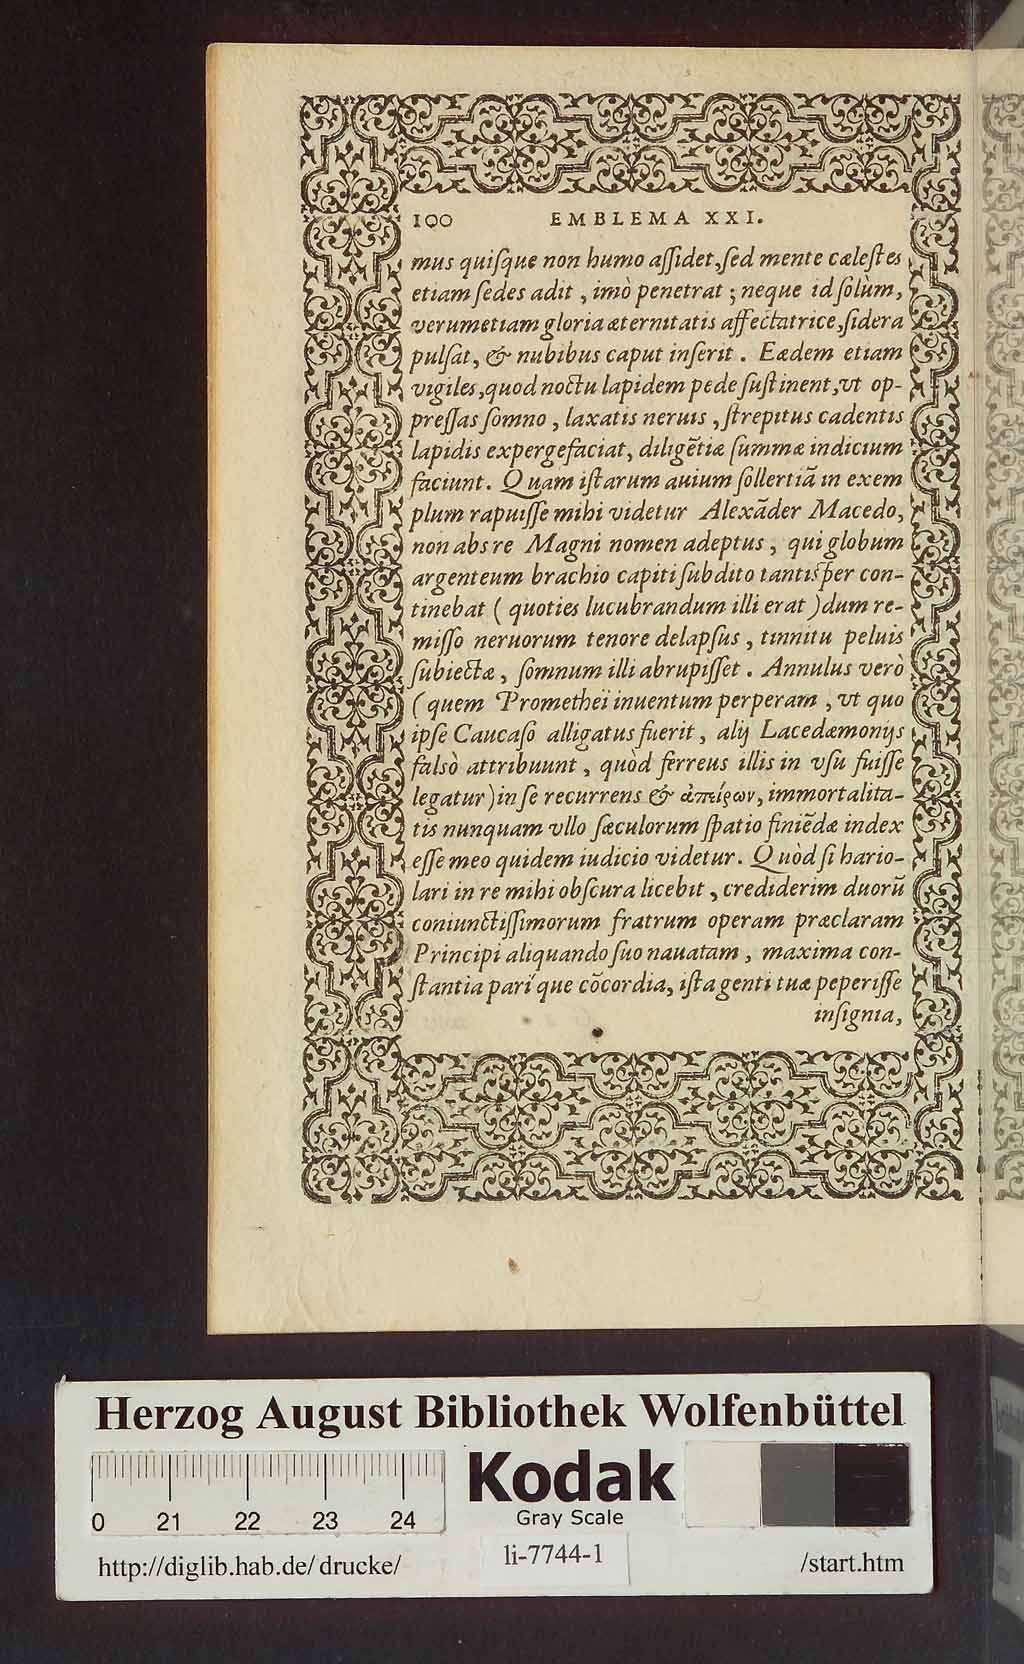 100 EMBLEMA XXI.
mus quiſque non humo aſſidet, ſed mente cæleſtes
etiam ſedes adit, imò penetrat; neque id ſolùm,
verumetiam gloria æternitatis affectatrice, ſidera
pulſat, & nubibus caput inſerit. Eædem etiam
vigiles, quod noctu lapidem pede ſuſtinent, vt op-
preſſas ſomno, laxatis neruis, ſtrepitus cadentis
lapidis expergefaciat, diligẽtiæ ſummæ indicium
faciunt. Quam iſtarum auium ſollertiã in exem
plum rapuiſſe mihi videtur Alexãder Macedo,
non abs re Magni nomen adeptus, qui globum
argenteum brachio capiti ſubdito tantiſper con-
tinebat (quoties lucubrandum illi erat) dum re-
miſſo neruorum tenore delapſus, tinnitu peluis
ſubiectæ, ſomnum illi abrupiſſet. Annulus verò
(quem Prometheï inuentum perperam, vt quo
ipſe Caucaſo alligatus fuerit, alij Lacedæmonijs
falsò attribuunt, quòd ferreus illis in vſu fuiſſe
legatur) in ſe recurrens & ἀπείρων, immortalita-
tis nunquam vllo ſæculorum ſpatio finiẽdæ index
eſſe meo quidem iudicio videtur. Quòd ſi hario-
lari in re mihi obſcura licebit, crediderim duorũ
coniunctiſſimorum fratrum operam præclaram
Principi aliquando ſuo nauatam, maxima con-
ſtantia pari que cõcordia, iſta genti tuæ peperiſſe
inſignia,
Herzog August Bibliothek Wolfenbüttel
0 21 22 23 24
Kodak
Gray Scale
http://diglib.hab.de/drucke/
li-7744-1
/start.htm